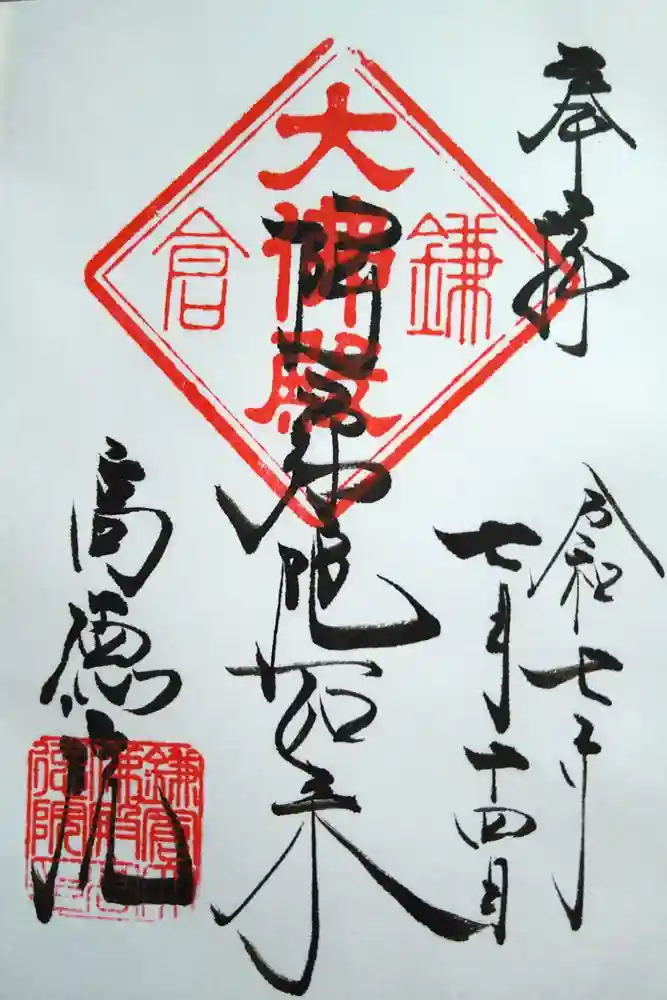 奉拝
令和七年
七月十四日
鎌倉
大佛殿
阿弥陀如来
高徳院